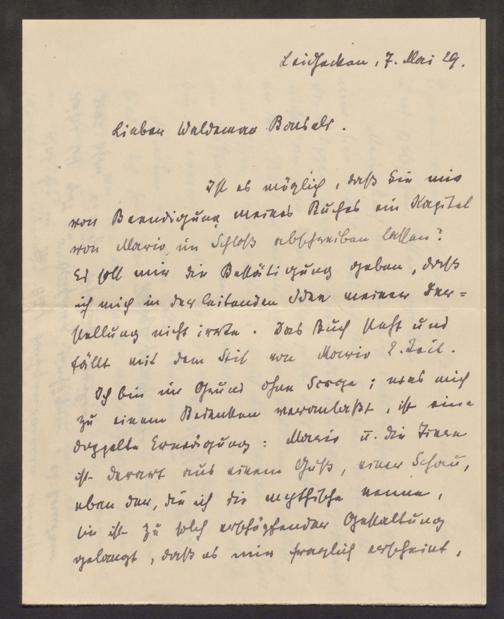 7. Mai 29.
Lieber Waldemar Bonsels.
Ist es möglich, daß Sie mir
vor Beendigung meines Buches ein Kapitel
von Mario im Schloß abschreiben lassen?
Es soll mir die Bestätigung geben, daß
ich mich in der leitenden Idee meiner Dar=
stellung nicht irrte. Das Buch steht und
fällt mit dem Stil von Mario 2. Teil.
Ich bin im Grund ohne Sorge; was mich
zu einem Bedenken veranlaßt, ist eine
doppelte Erwägung: Mario u. die Tiere
ist derart aus einem Guß, einer Schau,
eben der, die ich die mythische nenne,
sie ist zu solch erschöpfender Gestaltung
gelangt, daß es mir fraglich erscheint,